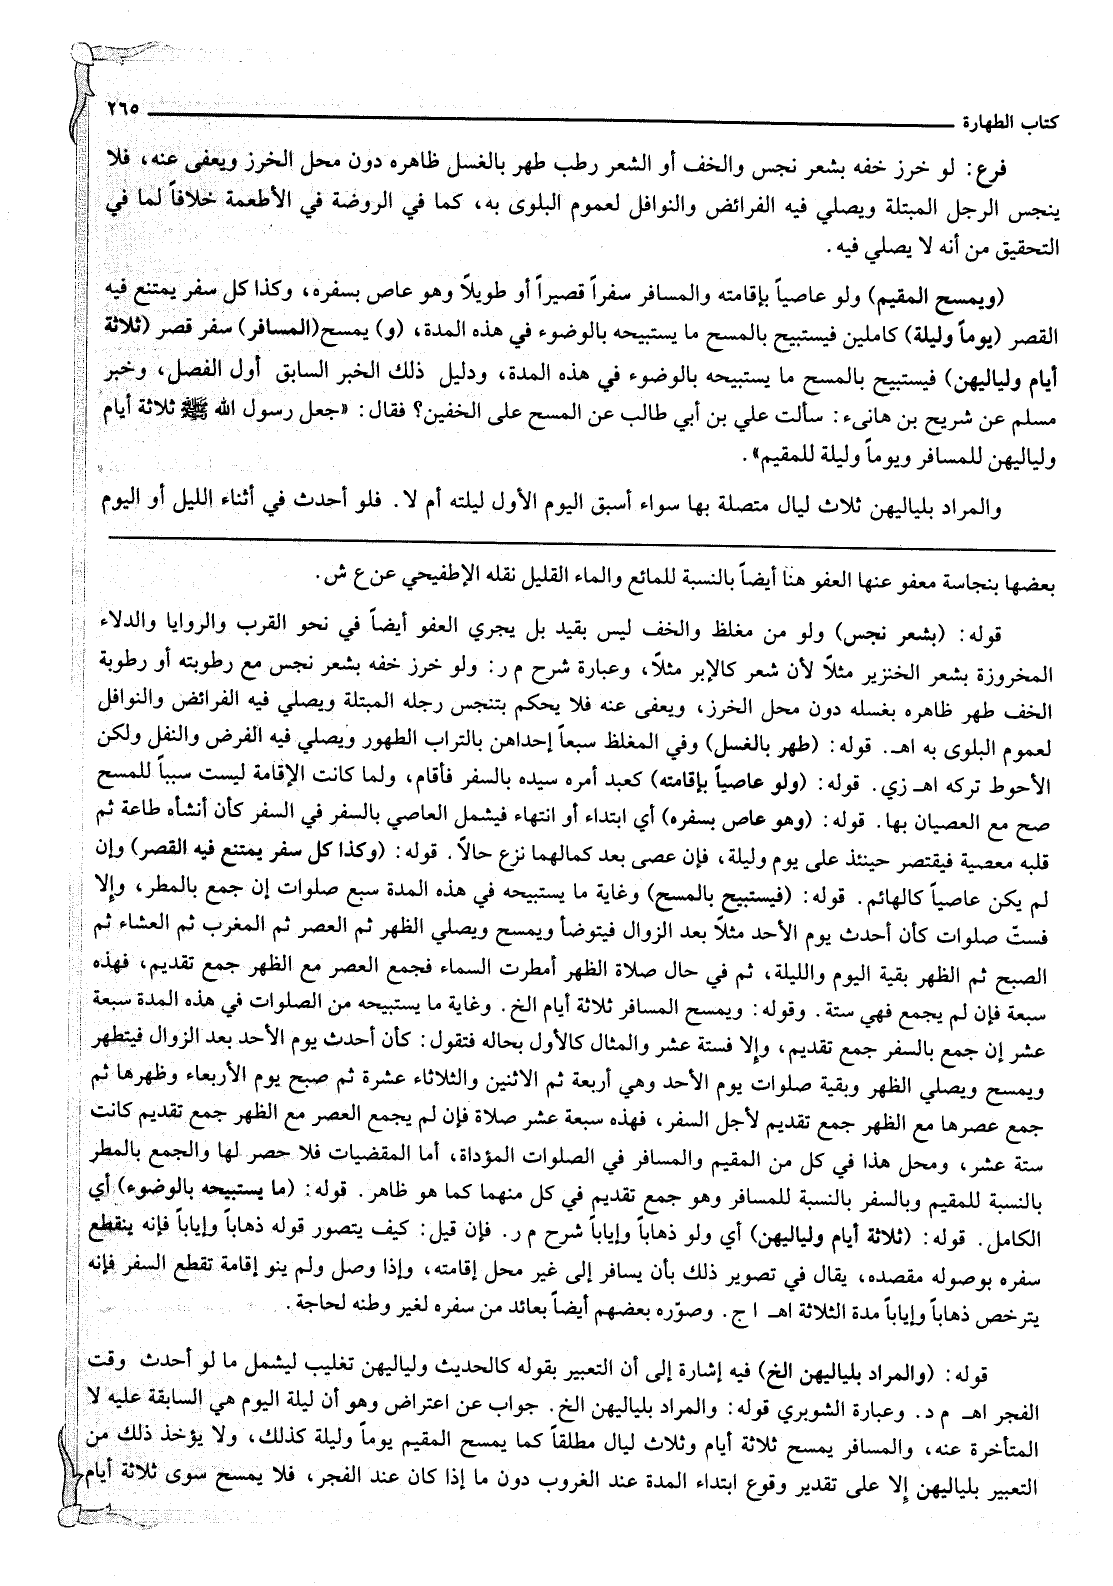 كتاب الطهارة ٢٦٥
فرع: لو خرز خفه بشعر نجس والخف أو الشعر رطب طهر بالغسل ظاهره دون محل الخرز ويعفى عنه، فلا
ينجس الرجل المبتلة ويصلي فيه الفرائض والنوافل لعموم البلوى به، كما في الروضة في الأطعمة خلافاً لما في
التحقيق من أنه لا يصلي فيه.
(ويمسح المقيم) ولو عاصياً بإقامته والمسافر سفراً قصيراً أو طويلاً وهو عاص بسفره، وكذا كل سفر يمتنع فيه
القصر (يوماً وليلة) كاملين فيستبيح بالمسح ما يستبيحه بالوضوء في هذه المدة، (و) يمسح (المسافر) سفر قصر (ثلاثة
أيام ولياليهن) فيستبيح بالمسح ما يستبيحه بالوضوء في هذه المدة، ودليل ذلك الخبر السابق أول الفصل، وخبر
مسلم عن شريح بن هانىء: سألت علي بن أبي طالب عن المسح على الخفين؟ فقال: «جعل رسول الله ﷺ ثلاثة أيام
ولياليهن للمسافر ويوماً وليلة للمقيم».
والمراد بلياليهن ثلاث ليال متصلة بها سواء أسبق اليوم الأول ليلته أم لا. فلو أحدث في أثناء الليل أو اليوم
بعضها بنجاسة معفو عنها العفو هنا أيضاً بالنسبة للمائع والماء القليل نقله الإطفيحي عن ع ش.
قوله: (بشعر نجس) ولو من مغلظ والخف ليس بقيد بل يجري العفو أيضاً في نحو القرب والروايا والدلاء
المخروزة بشعر الخنزير مثلاً لأن شعر كالإبر مثلاً، وعبارة شرح م ر: ولو خرز خفه بشعر نجس مع رطوبته أو رطوبة
الخف طهر ظاهره بغسله دون محل الخرز، ويعفى عنه فلا يحكم بتنجس رجله المبتلة ويصلي فيه الفرائض والنوافل
لعموم البلوى به اهـ. قوله: (طهر بالغسل) وفي المغلظ سبعاً إحداهن بالتراب الطهور ويصلي فيه الفرض والنفل ولكن
الأحوط تركه اهـ زي. قوله: (ولو عاصياً بإقامته) كعبد أمره سيده بالسفر فأقام، ولما كانت الإقامة ليست سبباً للمسح
صح مع العصيان بها. قوله: (وهو عاص بسفره) أي ابتداء أو انتهاء فيشمل العاصي بالسفر في السفر كأن أنشأه طاعة ثم
قلبه معصية فيقتصر حينئذ على يوم وليلة، فإن عصى بعد كمالهما نزع حالاً. قوله: (وكذا كل سفر يمتنع فيه القصر) وإن
لم يكن عاصياً كالهائم. قوله: (فيستبيح بالمسح) وغاية ما يستبيحه في هذه المدة سبع صلوات إن جمع بالمطر، وإلا
فستّ صلوات كأن أحدث يوم الأحد مثلاً بعد الزوال فيتوضأ ويمسح ويصلي الظهر ثم العصر ثم المغرب ثم العشاء ثم
الصبح ثم الظهر بقية اليوم والليلة، ثم في حال صلاة الظهر أمطرت السماء فجمع العصر مع الظهر جمع تقديم، فهذه
سبعة فإن لم يجمع فهي ستة. وقوله: ويمسح المسافر ثلاثة أيام الخ. وغاية ما يستبيحه من الصلوات في هذه المدة سبعة
عشر إن جمع بالسفر جمع تقديم، وإلا فستة عشر والمثال كالأول بحاله فتقول: كأن أحدث يوم الأحد بعد الزوال فيتطهر
ويمسح ويصلي الظهر وبقية صلوات يوم الأحد وهي أربعة ثم الاثنين والثلاثاء عشرة ثم صبح يوم الأربعاء وظهرها ثم
جمع عصرها مع الظهر جمع تقديم لأجل السفر، فهذه سبعة عشر صلاة فإن لم يجمع العصر مع الظهر جمع تقديم كانت
ستة عشر، ومحل هذا في كل من المقيم والمسافر في الصلوات المؤداة، أما المقضيات فلا حصر لها والجمع بالمطر
بالنسبة للمقيم وبالسفر بالنسبة للمسافر وهو جمع تقديم في كل منهما كما هو ظاهر. قوله: (ما يستبيحه بالوضوء) أي
الكامل. قوله: (ثلاثة أيام ولياليهن) أي ولو ذهاباً وإياباً شرح م ر. فإن قيل: كيف يتصور قوله ذهاباً وإياباً فإنه ينقطع
سفره بوصوله مقصده، يقال في تصوير ذلك بأن يسافر إلى غير محل إقامته، وإذا وصل ولم ينو إقامة تقطع السفر فإنه
يترخص ذهاباً وإياباً مدة الثلاثة اهـ ا ج. وصوّره بعضهم أيضاً بعائد من سفره لغير وطنه لحاجة.
قوله: (والمراد بلياليهن الخ) فيه إشارة إلى أن التعبير بقوله كالحديث ولياليهن تغليب ليشمل ما لو أحدث وقت
الفجر اهـ م د. وعبارة الشوبري قوله: والمراد بلياليهن الخ. جواب عن اعتراض وهو أن ليلة اليوم هي السابقة عليه لا
المتأخرة عنه، والمسافر يمسح ثلاثة أيام وثلاث ليال مطلقاً كما يمسح المقيم يوماً وليلة كذلك، ولا يؤخذ ذلك من
التعبير بلياليهن إلا على تقدير وقوع ابتداء المدة عند الغروب دون ما إذا كان عند الفجر، فلا يمسح سوى ثلاثة أيام